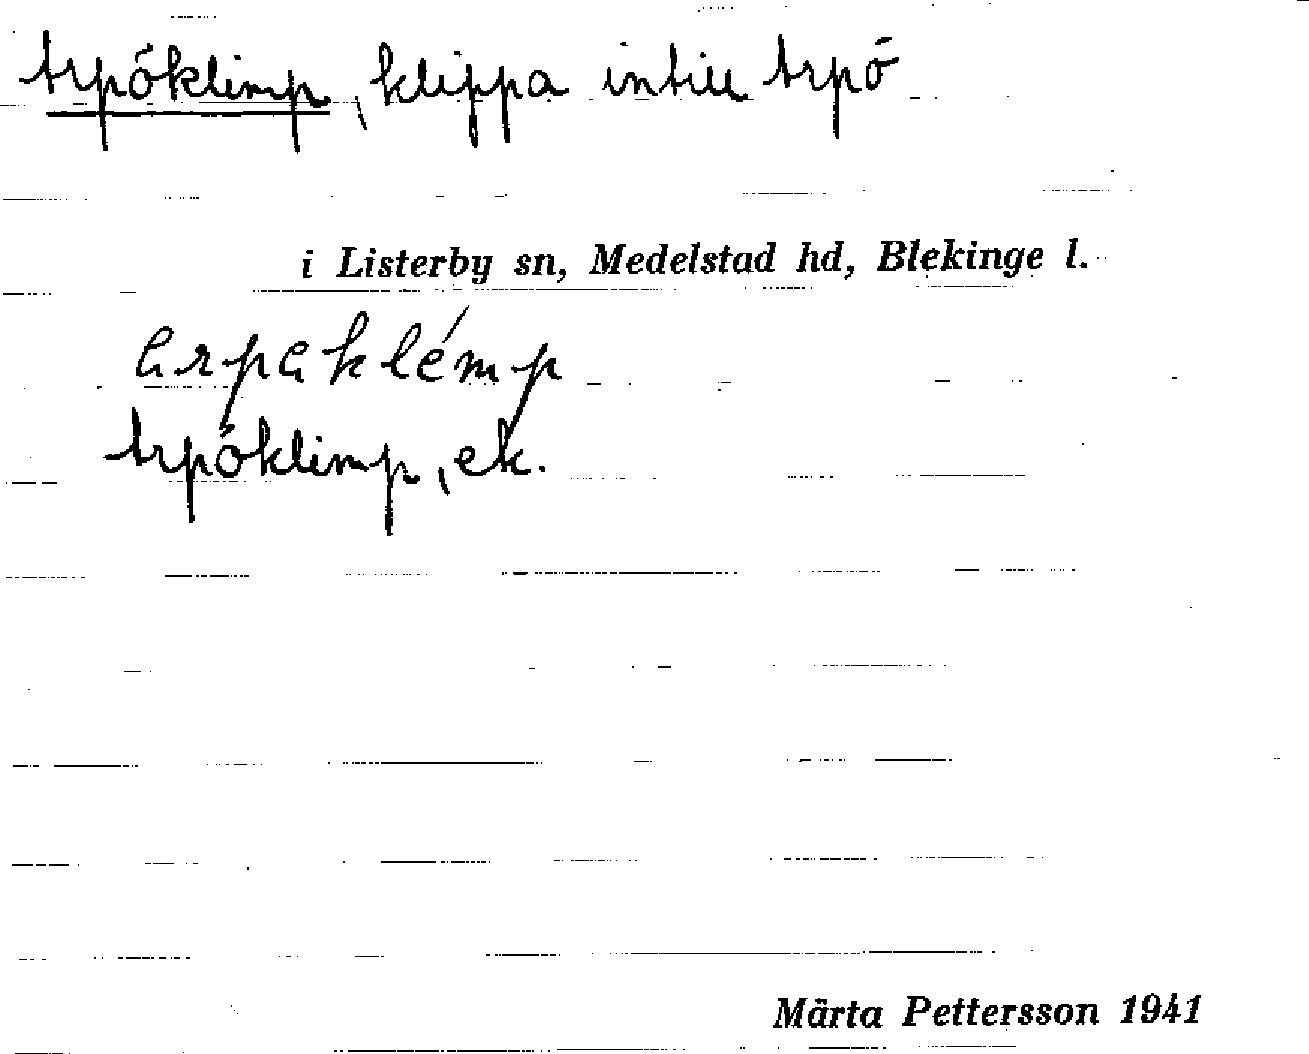 Arpöklimp, klippa intill Arpö
i Listerby sn, Medelstad hd, Blekinge l.
arpaklémp
Arpöklimp, ek.
Märta Pettersson 1941